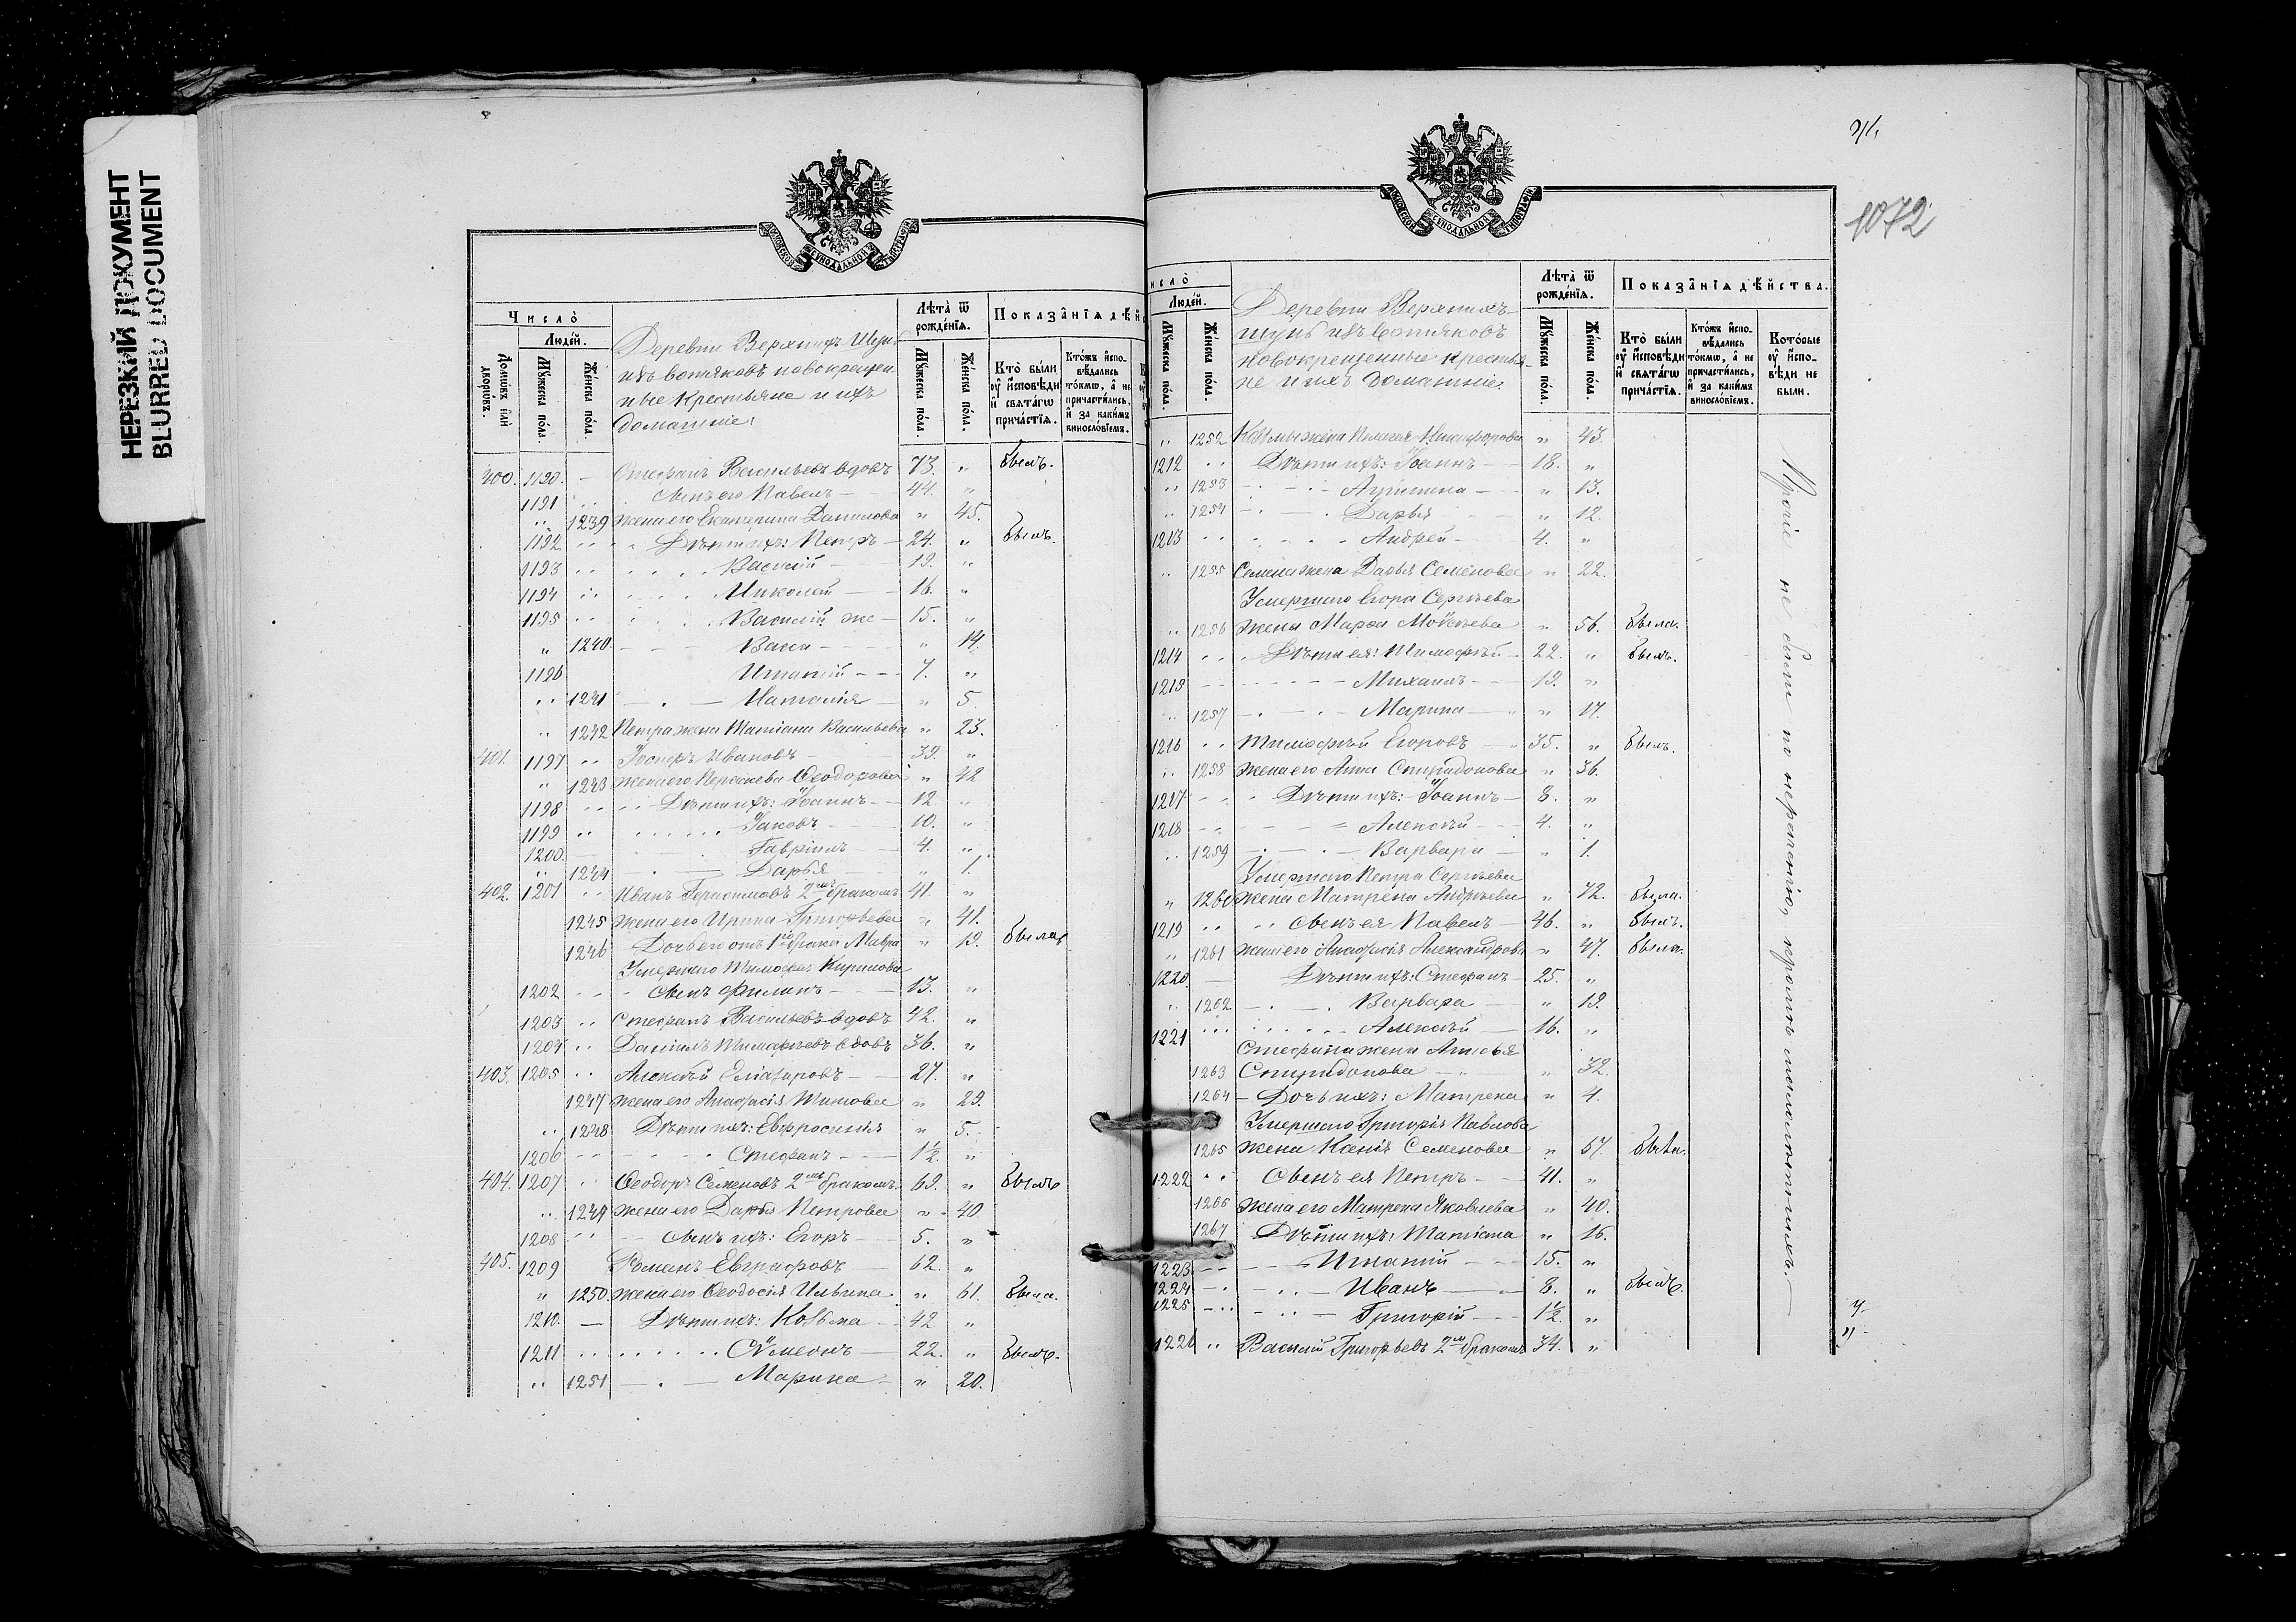 НЕРЕЗКИЙ ДОКУМЕНТ
BLURRED DOCUMENT
МОСКОВСКОЙ СѴНОДАЛЬНОЙ ТИПОГРАФІИ
Число̀
Люде́й.
Домѡ́въ и҆лѝ дворѡ́въ.
Мꙋ́жеска по́ла.
Же́нска по́ла.
Деревни Верхнихъ Шунь
изъ вотяковъ новокрещен
ные крестьяне и ихъ
домашніе:
Лѣ́та ѿ рожде́нїѧ.
Мꙋ́жеска по́ла.
Же́нска по́ла.
Показа̑нїѧ дѣ́йс
Кто̀ бы́ли ᲂу҆ и҆сповѣ́ди и҆ свѧта́гѡ прича́стїѧ.
Кто́жъ и҆спо-вѣ́дались то́кмѡ, а҆ не причасти́лись, и҆ за каки́мъ виносло́вїемъ.
400. 1190. — Стефанъ Васильевъ вдовъ 73. " былъ.
1191 сынъ его Павелъ — 44. "
" 1239 жена его Екатерина Данилова " 45.
1192 Дѣти ихъ: Петръ — 24. " былъ.
1193 Василій — 19. "
1194 Николай — 16. "
1195 Василій же — 15. "
" 1240 Васса " 14.
1196 Игнатій — 7. "
" 1241 Наталія — " 5.
" 1242 Петра жена Татіана Васильева " 23.
401. 1197 Іосифъ Ивановъ 39. "
" 1243 жена его Феодорова " 42
1198 Дѣти ихъ: Іоаннъ 12 "
1199 Іаковъ 10. "
1200. Гавріилъ 4. "
" 1244 Дарья " 1.
402. 1201 Иванъ Герасимовъ 2мъ бракомъ 41 "
1245 жена его Ирина " 41.
1246 Дочь его отъ 1го брака Мавра " 19. была
Умершаго Тимофея Кирилова
1202 сынъ Филипъ 13. "
1203 Стефанъ Васильевъ вдовъ 42. "
1204 Даніилъ Тимофеевъ вдовъ 36. "
403. 1205 Алексѣй Елизаровъ 27. "
1247 жена его Анафасія Титова " 29.
" 1248 Дѣти ихъ: Евфросинія " 5.
1206 Стефанъ 1½. "
404. 1207 Феодоръ Семеновъ 2мъ бракомъ 69. " былъ
" 1249 жена его Дарья Петрова " 40
1208 сынъ ихъ: Егоръ 5. "
405. 1209 Романъ Евграфовъ 62. "
" 1250. жена его Феодосія Ильина " 61. была.
1210. — Дѣти ихъ: Козьма 42 "
1211 Сѵмеонъ 22. " былъ.
" 1251 Марина " 20.
1072
МОСКОВСКОЙ СѴНОДАЛЬНОЙ ТИПОГРАФІИ
исло̀
Люде́й.
Мꙋ́жеска по́ла.
Же́нска по́ла.
Деревни Верхнихъ
шунь изъ вотяковъ
новокрещенные крестья
не и ихъ домашніе:
Лѣ́та ѿ рожде́нїѧ.
Мꙋ́жеска по́ла.
Же́нска по́ла.
Показа̑нїѧ дѣ́йства.
Кто̀ бы́ли ᲂу҆ и҆сповѣ́ди и҆ свѧта́гѡ прича́стїѧ.
Кто́жъ и҆спо-вѣ́дались то́кмѡ, а҆ не причасти́лись, и҆ за каки́мъ виносло́вїемъ.
Кото́рые ᲂу҆ и҆спо-вѣ́ди не бы́ли.
" 1252 Козьмы жена Пелагея Никифорова " 43.
1212 Дѣти ихъ: Іоаннъ 18. "
" 1253 Агрипина " 13.
" 1254 Дарья " 12.
1213 Андрей 4. "
" 1255 Семена жена Дарья Семенова " 22.
Умершаго Егора Сергѣева
" 1256 жена Марфа Моѵсѣева " 56. была.
1214 Дѣти ея: Тимофей 22. " былъ.
1215 Михаилъ 19. "
1257 Марина " 17.
1216 Тимофѣй Егоровъ 35. " былъ.
" 1258 жена его Анна Спиридонова " 36.
1217 Дѣти ихъ: Іоаннъ 8. "
1218 Алексѣй 4. "
" 1259 Варвара " 1.
Умершаго Петра Сергѣева
" 1260 жена Матрена Андрѣева " 72. была.
1219 сынъ ея Павелъ 46. " былъ.
" 1261 жена его Анафасія Александрова " 47. была.
1220 Дѣти ихъ: Стефанъ 25. "
" 1262 Варвара " 19.
1221 Алексѣй 16. "
Стефана жена
1263 Спиридонова " 32.
1264 — Дочь ихъ: Матрена " 4.
Умершаго Григорія Павлова
1265 жена Ксенія Семенова " 67. была.
1222 Сынъ ея Петръ 41. "
1266 жена его Матрена Яковлева " 40.
1267 Дѣти ихъ: Татіана " 16.
1223 Игнатій 15. "
1224 Иванъ 8. " былъ.
1225 Григорій 1½. "
1226 Василій Григорьевъ 2мъ бракомъ 34. "
Прочіе не были по нераченію, кромѣ малолѣтнихъ.